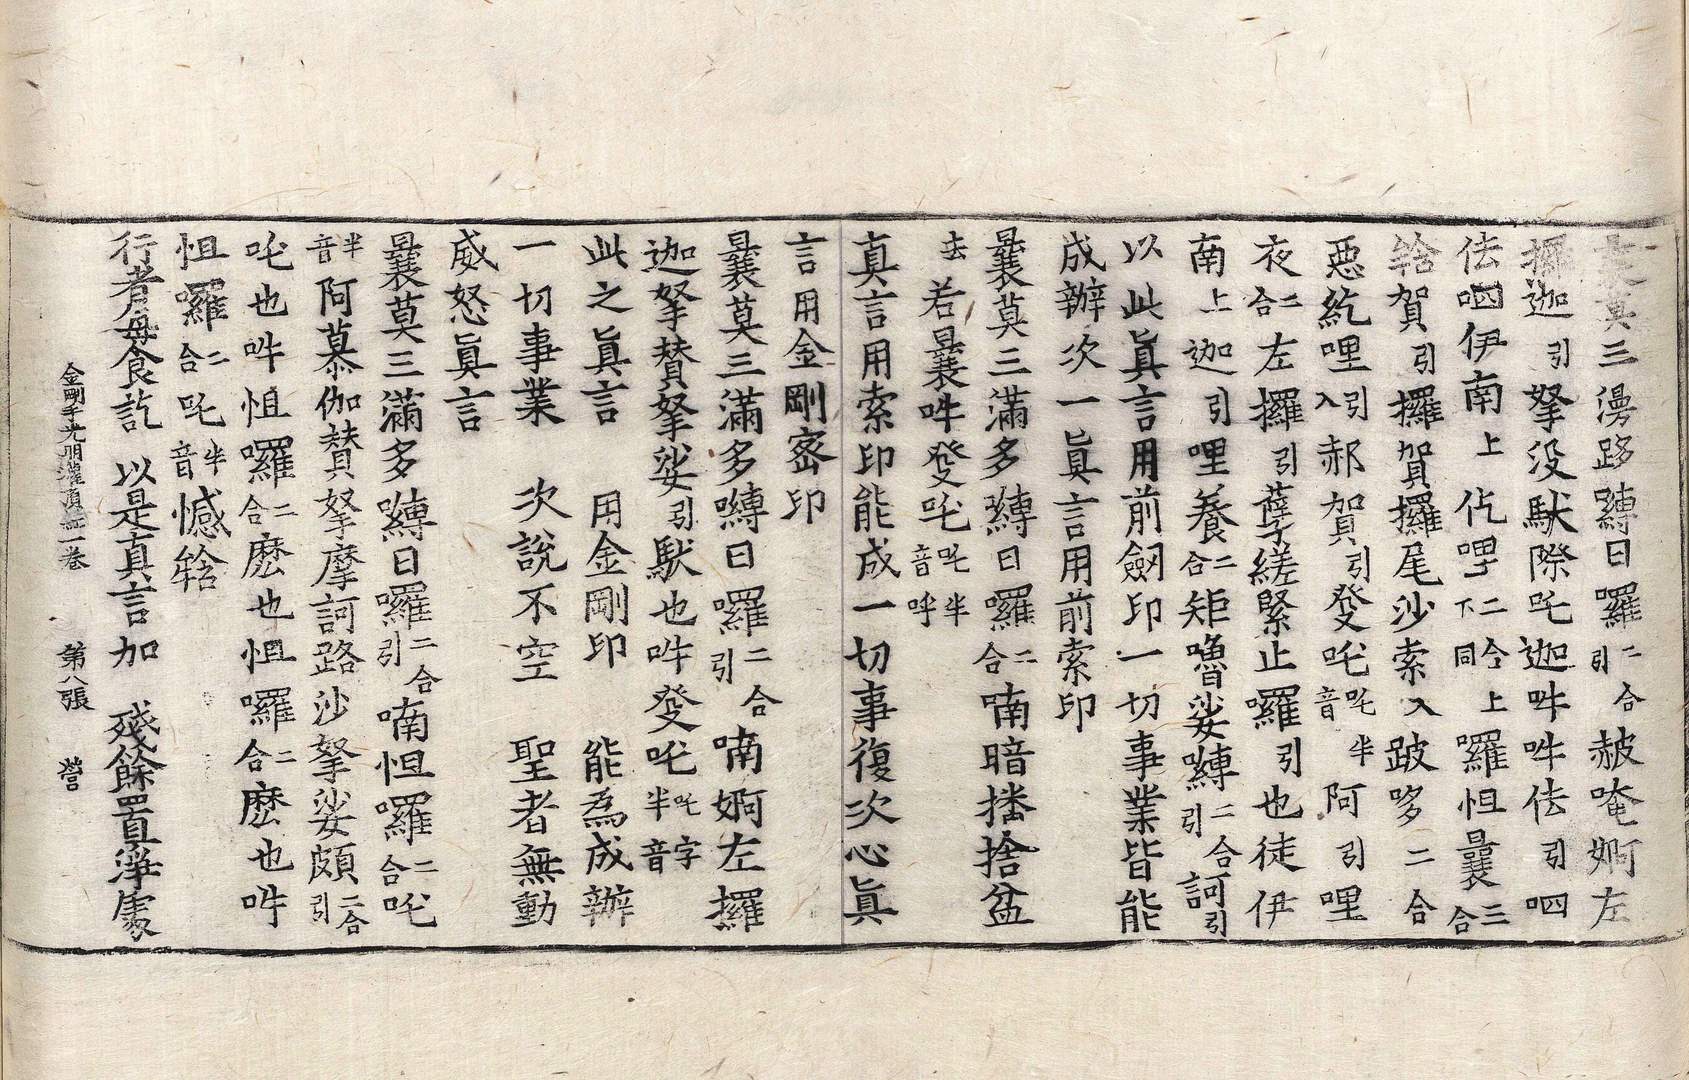 曩莫三漫跢嚩日囉二合引赧唵婀左
攞迦引拏没馱際吒迦吽吽佉引呬
佉呬伊南上仡哩二合下同上囉怛曩三合
䄍賀引攞賀攞尾沙索入跛哆二合
惡紇哩引入郝賀引發吒吒音半阿引哩
夜二合左攞引孽縒緊止囉引也徒伊
南上迦引哩養二合矩嚕娑嚩二合引訶引
以此眞言用前劒印一切事業皆能
成辦次一眞言用前索印
曩莫三滿多嚩日囉二合喃暗播捨盆
去若曩吽發吒吒半音呼
真言用索印能成一切事復次心眞
言用金剛密印
曩莫三滿多嚩日囉二合引喃婀左攞
迦拏賛拏娑引馱也吽發吒吒字半音
此之眞言　用金剛印　能爲成辦
一切事業　次說不空　聖者無動
威怒眞言
曩莫三滿多嚩日囉二合引喃怛囉二合吒
半音阿慕伽賛拏摩訶路沙拏娑頗二合引
吒也吽怛囉二合麽也怛囉二合麽也吽
怛囉二合吒半音憾䄍
行者每食訖　以是真言加　殘餘置淨處
金剛手光明灌頂一卷　第八張　營